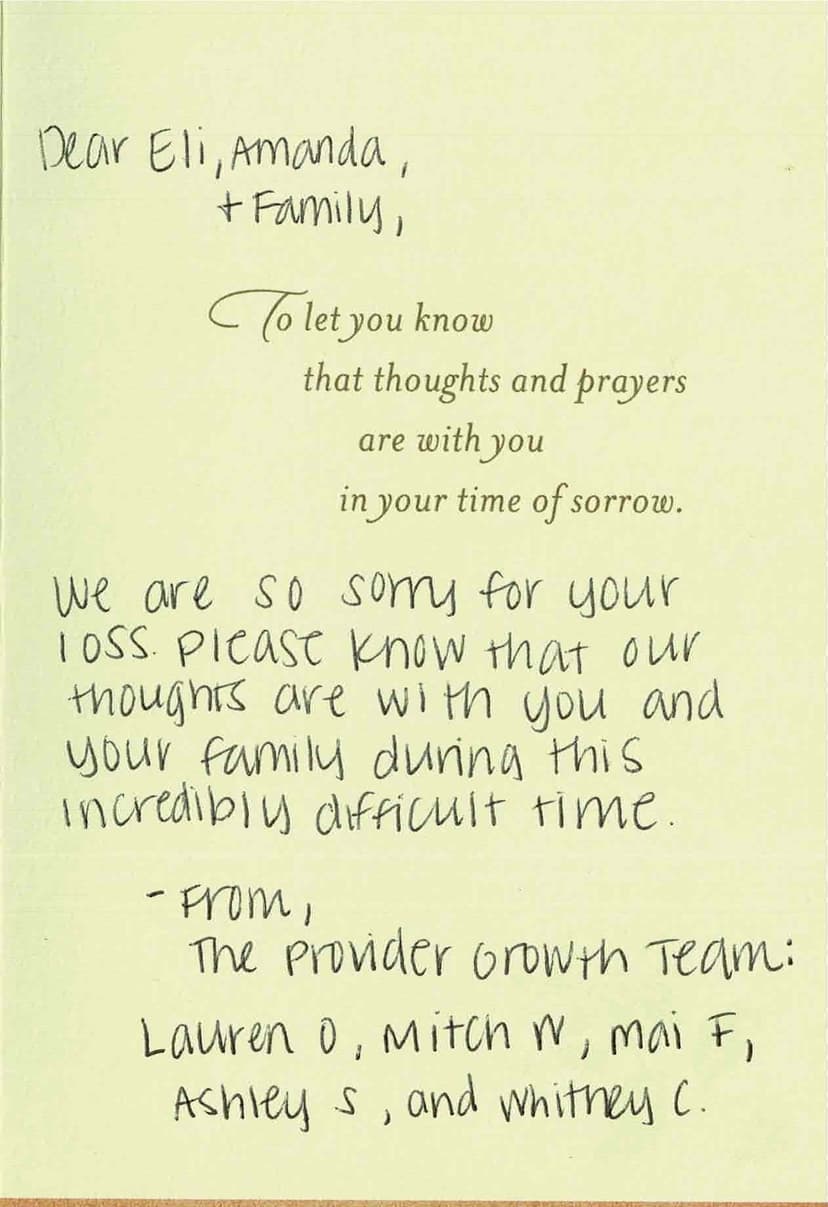 Dear Eli, Amanda,
+ Family,
To let you know
that thoughts and prayers
are with you
in your time of sorrow.
We are so sorry for your
loss. Please know that our
thoughts are with you and
your family during this
incredibly difficult time.
- From,
The Provider Growth Team:
Lauren O, Mitch W, Mai F,
Ashley S, and Whitney C.